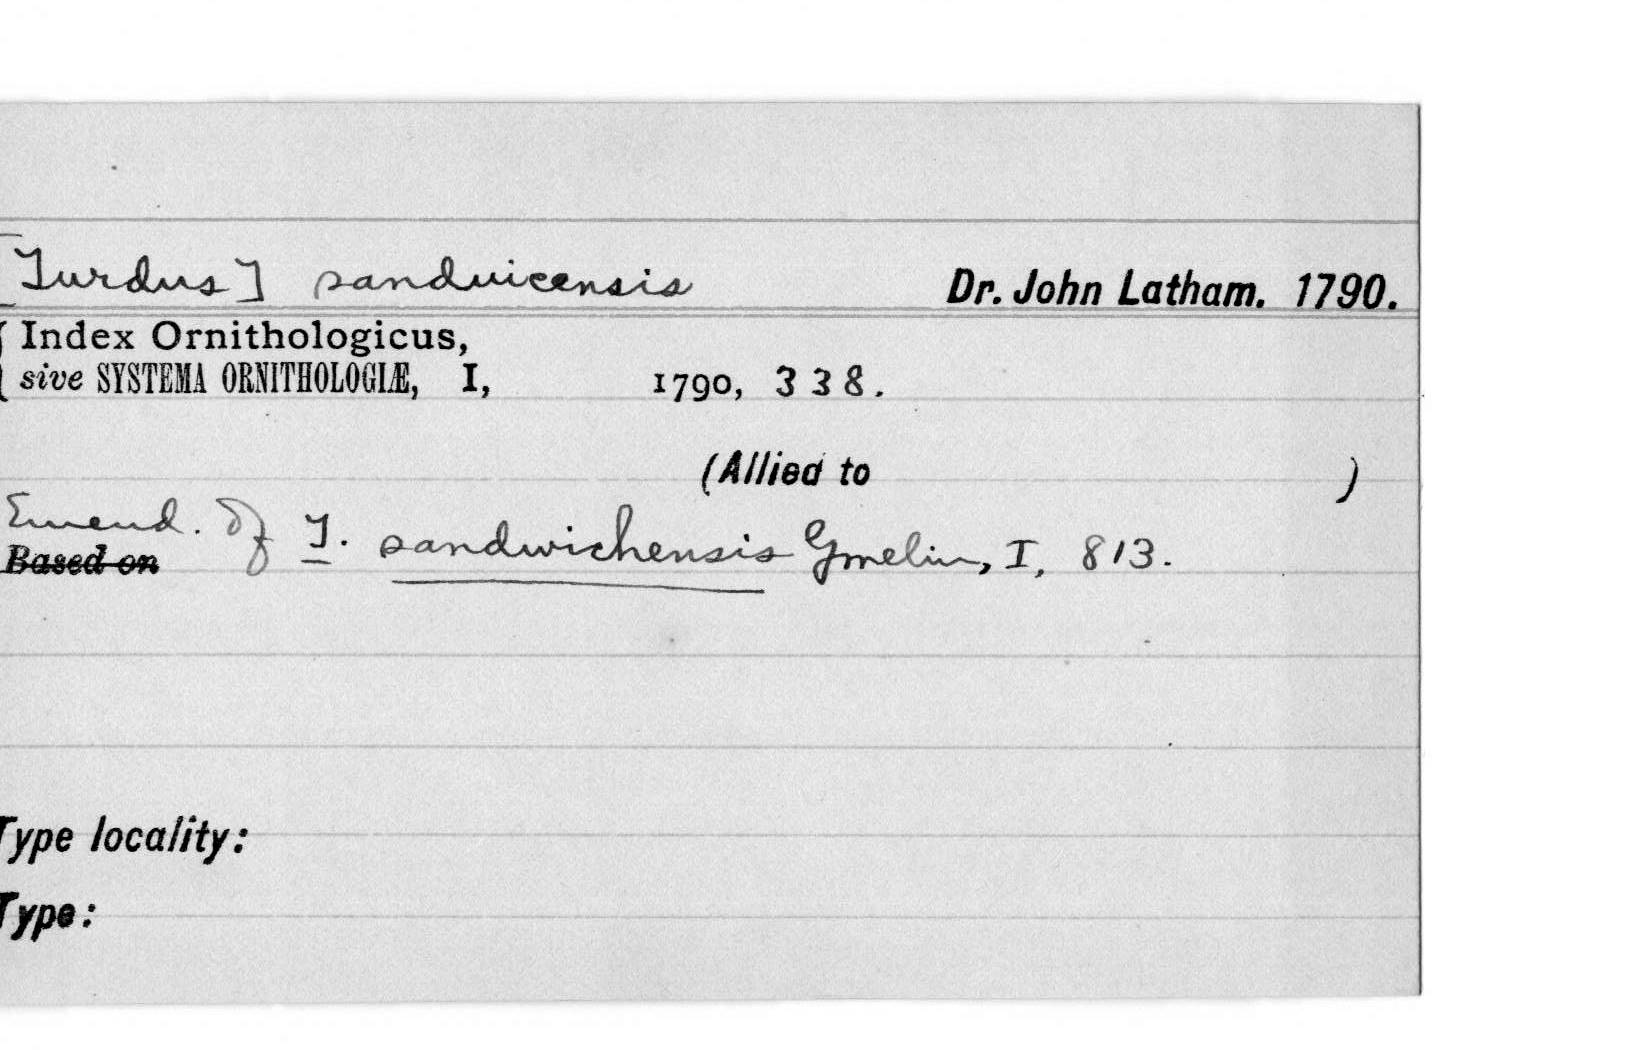 [Turdus] sandvicensis Dr. John Latham. 1790.
Index Ornithologicus,
sive SYSTEMA ORNITHOLOGIÆ, I, 1790, 338.
(Allied to )
Emend. Of T. sandwichensis Gmelin, I, 813.
Based on
Type locality:
Type: